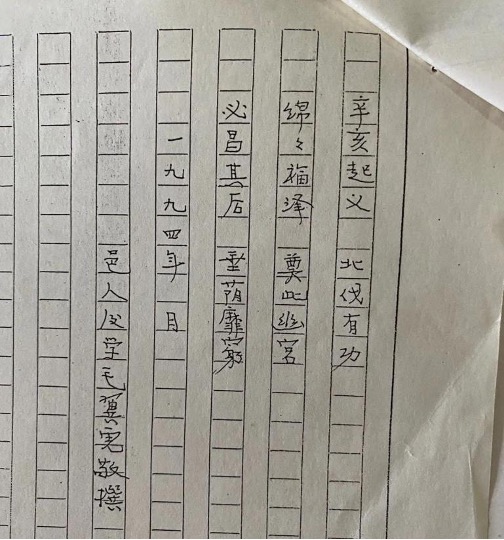 辛亥起义 北伐有功
绵々福泽 奠此幽宫
必昌其后 垂荫靡穷
一九九四年 月
邑人后学毛翼宪敬撰